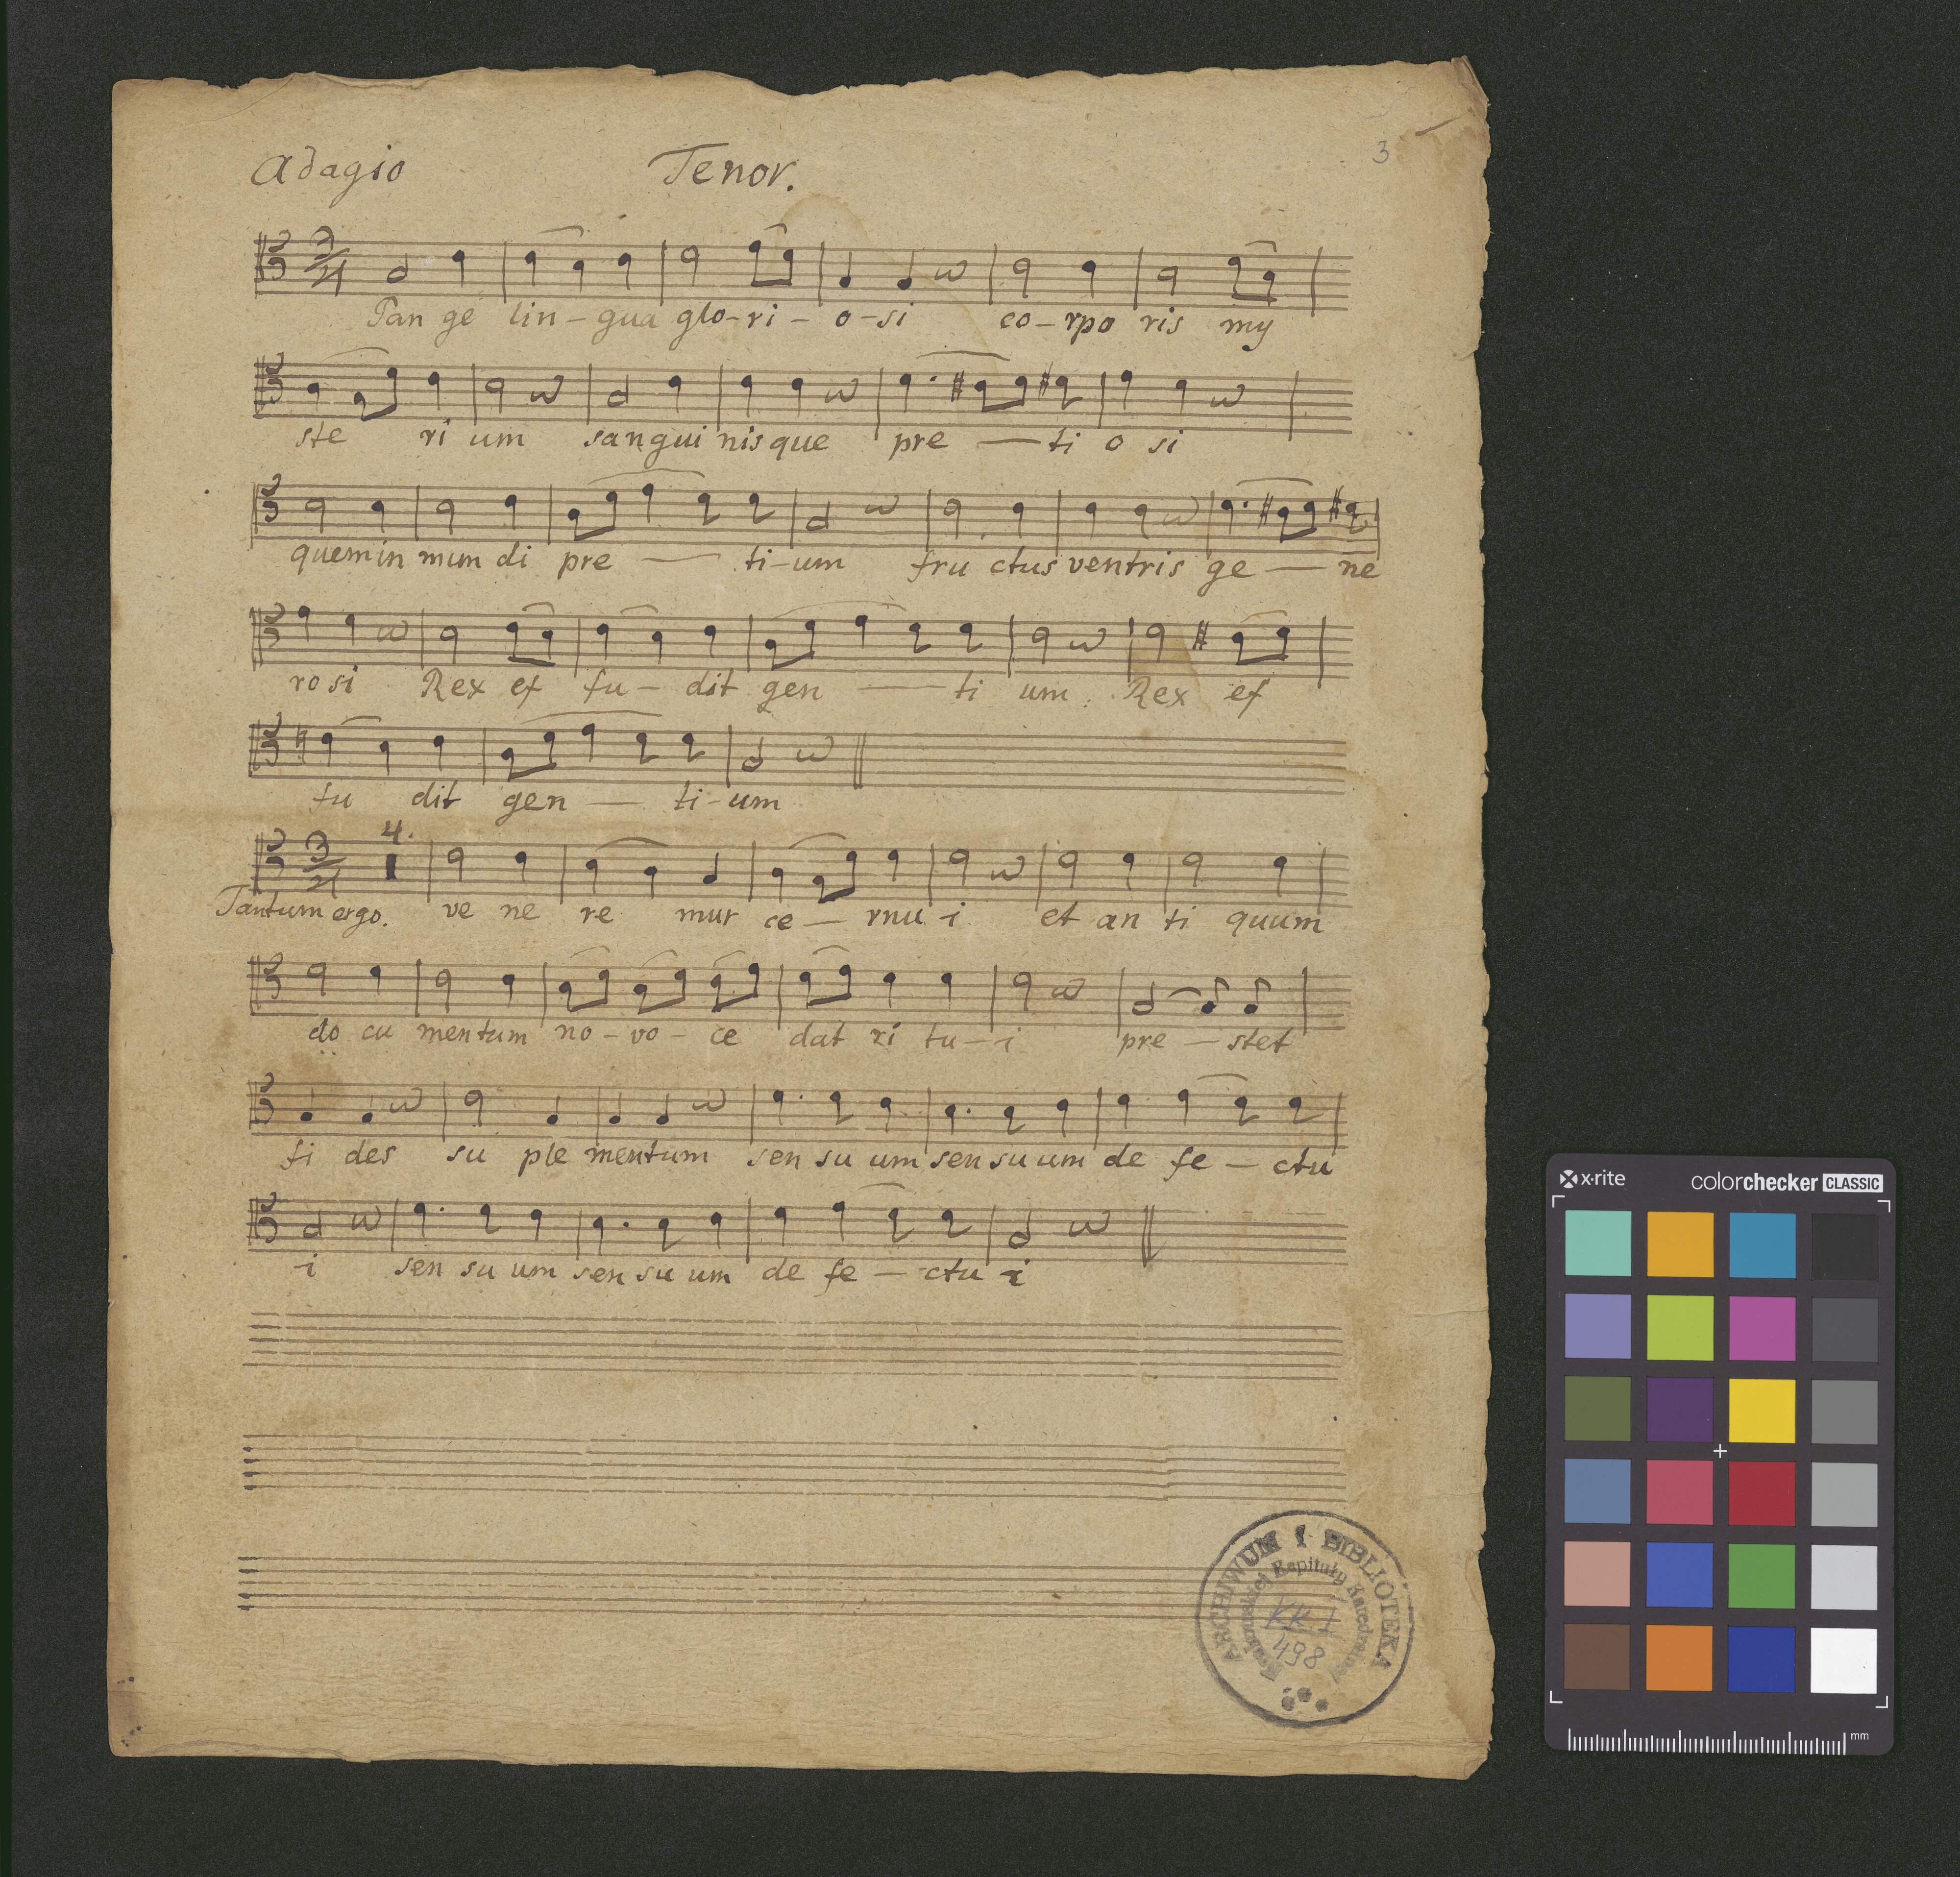 Adagio Tenor. 3
3/4
Pan ge lin - gua glo - ri - o - si co - rpo ris my
ste ri um sangui nisque pre — ti o si
quemin mun di pre — ti - um fru ctus ventris ge — ne
ro si Rex ef fu - dit gen — ti um : Rex ef
fu dit gen — ti - um
3/4 4.
Tantum ergo. ve ne re mur ce — rnu i et an ti quum
do cu mentum no - vo - ce dat ri tu - i pre — stet
fi des su ple mentum sen su um sen su um de fe — ctu
i sen su um sen su um de fe — ctu i
ARCHIWUM I BIBLIOTEKA
Krakowskiej Kapituły Katedralnej
KK I
498
x·rite colorchecker CLASSIC
mm